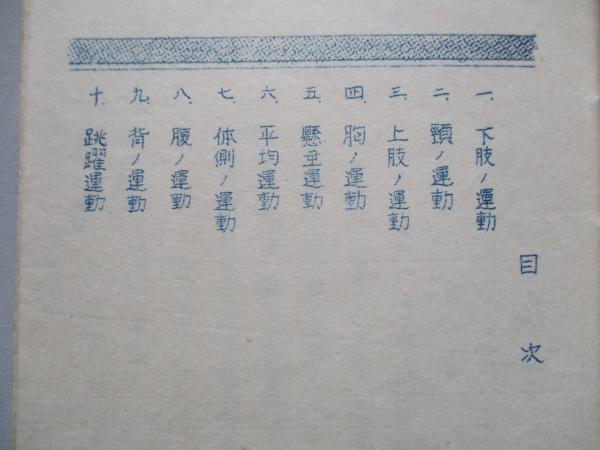 目次
一、下肢ノ運動
二、頸ノ運動
三、上肢ノ運動
四、胸ノ運動
五、懸垂運動
六、平均運動
七、体側ノ運動
八、腹ノ運動
九、背ノ運動
十、跳躍運動